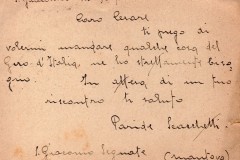 Caro Cesare
ti prego di
volermi mangare qualche cosa del
Giro d'Italia, ne ho strettamente biso
gno. In attesa di un tuo
riscontro ti saluto
Paride Scacchetti
S. Giacomo Segnate (Mantova)